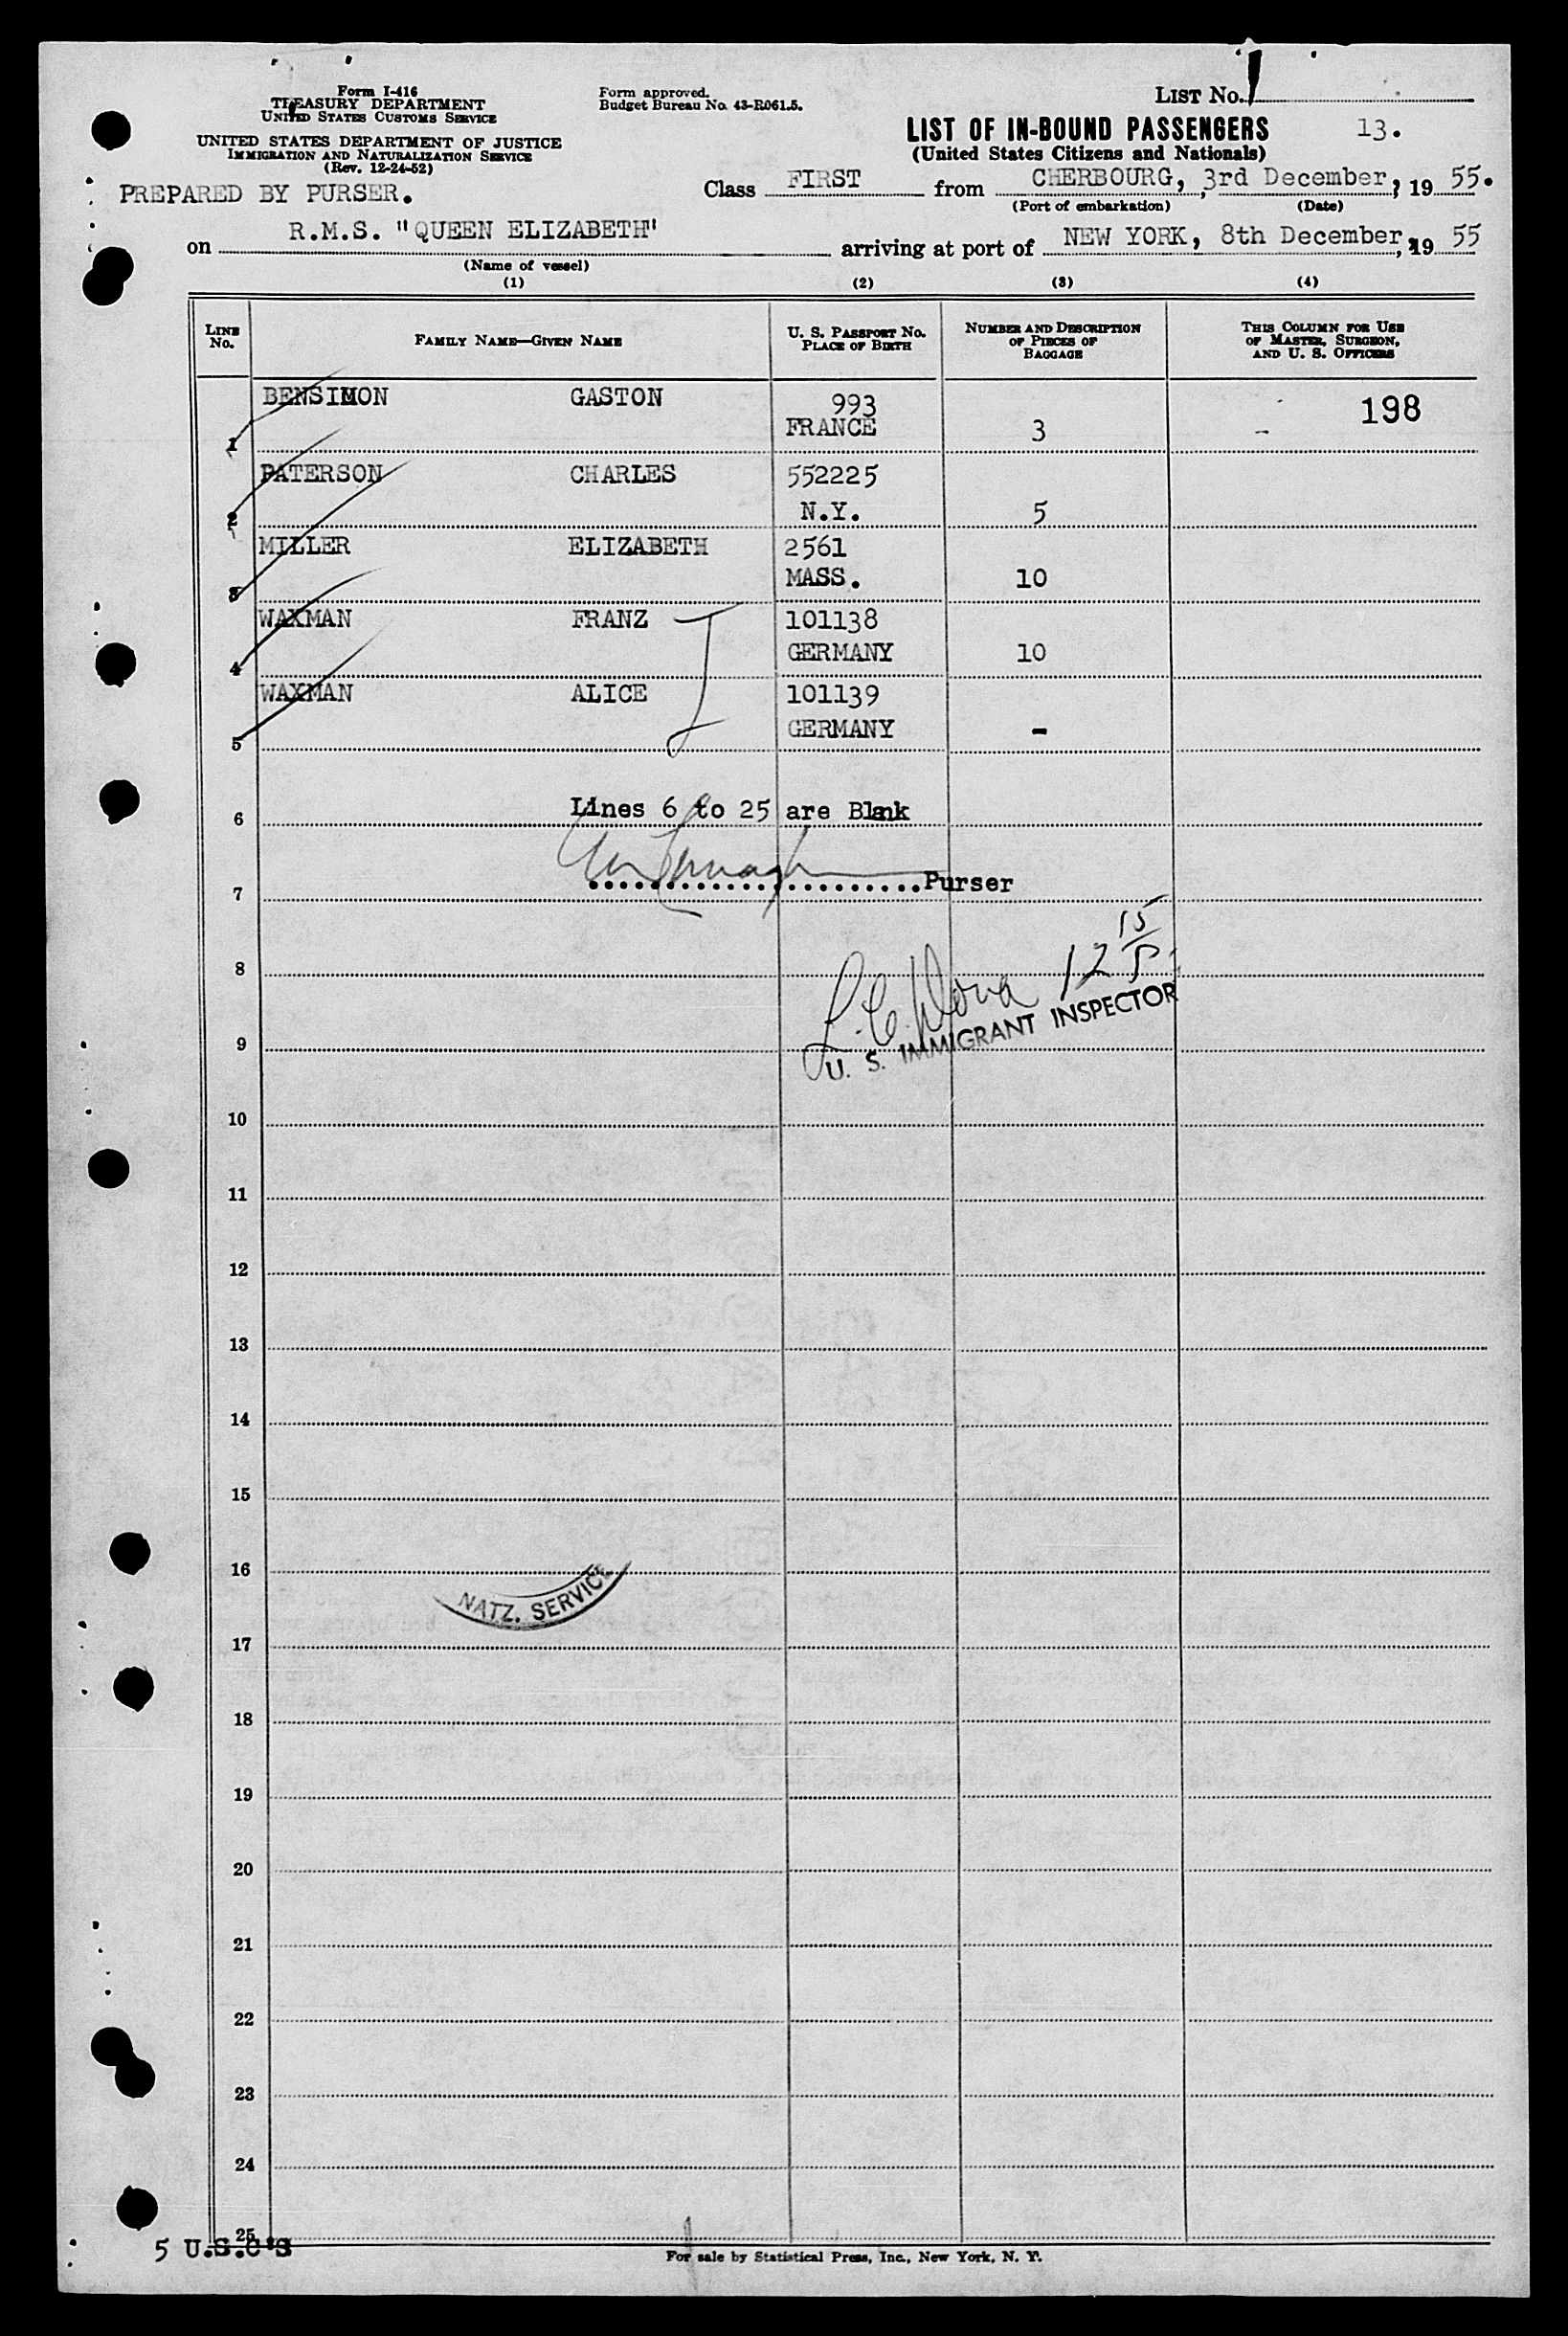 Form I-416
TREASURY DEPARTMENT
UNITED STATES CUSTOMS SERVICE
UNITED STATES DEPARTMENT OF JUSTICE
IMMIGRATION AND NATURALIZATION SERVICE
(Rev. 12-24-52)
PREPARED BY PURSER.
Form approved.
Budget Bureau No. 43-R061.5.
LIST No.
13.
LIST OF IN-BOUND PASSENGERS
(United States Citizens and Nationals)
Class FIRST from CHERBOURG, 3rd December, 19 55.
(Port of embarkation) (Date)
on R.M.S. "QUEEN ELIZABETH" arriving at port of NEW YORK, 8th December, 19 55
(Name of vessel)
(1) (2) (3) (4)
LINE No. FAMILY NAME—GIVEN NAME U. S. PASSPORT No. PLACE OF BIRTH NUMBER AND DESCRIPTION OF PIECES OF BAGGAGE THIS COLUMN FOR USE OF MASTER, SURGEON, AND U. S. OFFICERS
BENSIMON GASTON 993 198
1 FRANCE 3 -
PATERSON CHARLES 552225
2 N.Y. 5
MILLER ELIZABETH 2561
3 MASS. 10
WAXMAN FRANZ 101138
4 GERMANY 10
WAXMAN ALICE 101139
5 GERMANY -
6 Lines 6 to 25 are Blank
7 Purser
8 12 15/P
9 U. S. IMMIGRANT INSPECTOR
10
11
12
13
14
15
16
NATZ. SERVICE
17
18
19
20
21
22
23
24
25
5 U.S.C'S
For sale by Statistical Press, Inc., New York, N. Y.